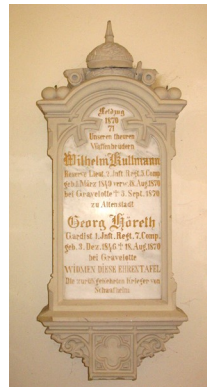 Feldzug
1870
71
Unseren theuren
Waffenbrüdern
Wilhelm Kullmann
Reserve Lieut. 2. Inft. Regt. 3. Comp.
geb. 1 März 1840 verw. 18. Aug. 1870
bei Gravelotte † 5. Sept. 1870
zu Altenstadt
Georg Höreth
Gardist 1. Inft. Regt. 7. Comp.
geb. 3. Dez. 1846 † 18. Aug. 1870
bei Gravelotte
WIDMEN DIESE EHRENTAFEL
Die zurückgekehrten Krieger von
Schaafheim